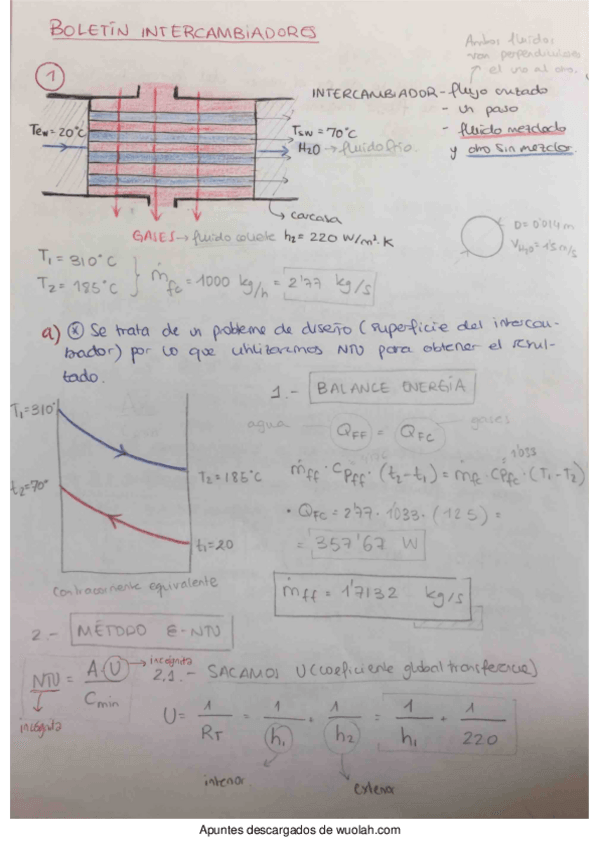 BOLETÍN INTERCAMBIADORES
Ambos fluidos
van perpendiculares
el uno al otro.
1
INTERCAMBIADOR - flujo cruzado
- un paso
- fluido mezclado
y otro sin mezclar.
Tew = 20°C
Tsw = 70°C
H2O → fluido frío
carcasa
GASES → fluido caliente h2 = 220 W/m².K
D = 0'014 m
VH2O = 1'5 m/s
T1 = 310°C
T2 = 185°C
ṁfc = 1000 kg/h = 2'77 kg/s
a) * Se trata de un problema de diseño (superficie del intercam-
biador) por lo que utilizaremos NTU para obtener el resul-
tado.
1.- BALANCE ENERGÍA
T1 = 310°
agua
QFF = QFC
gases
T2 = 185°C
1'033
ṁff · Cpff · (t2 - t1) = ṁfc · Cpfc · (T1 - T2)
t2 = 70°
• QFC = 2'77 · 1'033 · (125) =
= 357'67 W
t1 = 20
Contracorriente equivalente
ṁff = 1'7132 kg/s
2.- MÉTODO ε-NTU
NTU = A·U / Cmin
incógnita
incógnita
2.1.- SACAMOS U (coeficiente global transferencia)
U = 1 / RT = 1 / h1 + 1 / h2 = 1 / h1 + 1 / 220
interior
exterior
Apuntes descargados de wuolah.com